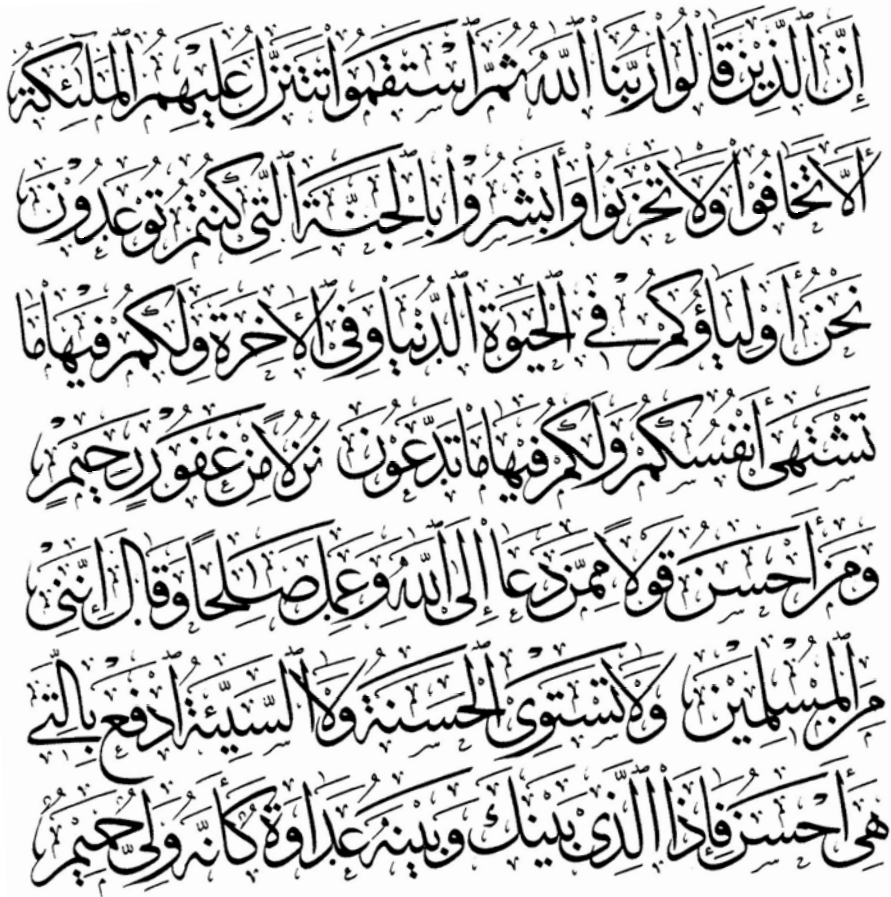 إِنَّ ٱلَّذِينَ قَالُوا۟ رَبُّنَا ٱللَّهُ ثُمَّ ٱسْتَقَٰمُوا۟ تَتَنَزَّلُ عَلَيْهِمُ ٱلْمَلَٰٓئِكَةُ
أَلَّا تَخَافُوا۟ وَلَا تَحْزَنُوا۟ وَأَبْشِرُوا۟ بِٱلْجَنَّةِ ٱلَّتِى كُنتُمْ تُوعَدُونَ
نَحْنُ أَوْلِيَاؤُكُمْ فِى ٱلْحَيَوٰةِ ٱلدُّنْيَا وَفِى ٱلْأَخِرَةِ وَلَكُمْ فِيهَا مَا
تَشْتَهِىٓ أَنفُسُكُمْ وَلَكُمْ فِيهَا مَا تَدَّعُونَ نُزُلًا مِّنْ غَفُورٍ رَّحِيمٍ
وَمَنْ أَحْسَنُ قَوْلًا مِّمَّن دَعَا إِلَى ٱللَّهِ وَعَمِلَ صَٰلِحًا وَقَالَ إِنَّنِى
مِنَ ٱلْمُسْلِمِينَ وَلَا تَسْتَوِى ٱلْحَسَنَةُ وَلَا ٱلسَّيِّئَةُ ٱدْفَعْ بِٱلَّتِى
هِىَ أَحْسَنُ فَإِذَا ٱلَّذِى بَيْنَكَ وَبَيْنَهُ عَدَاوَةٌ كَأَنَّهُ وَلِىٌّ حَمِيمٌ